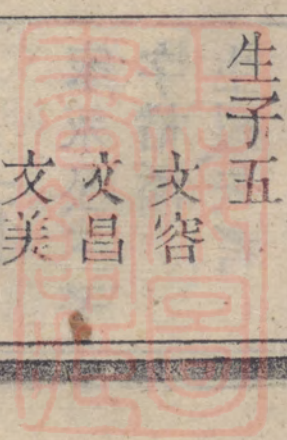 生子五
文容
文昌
文美